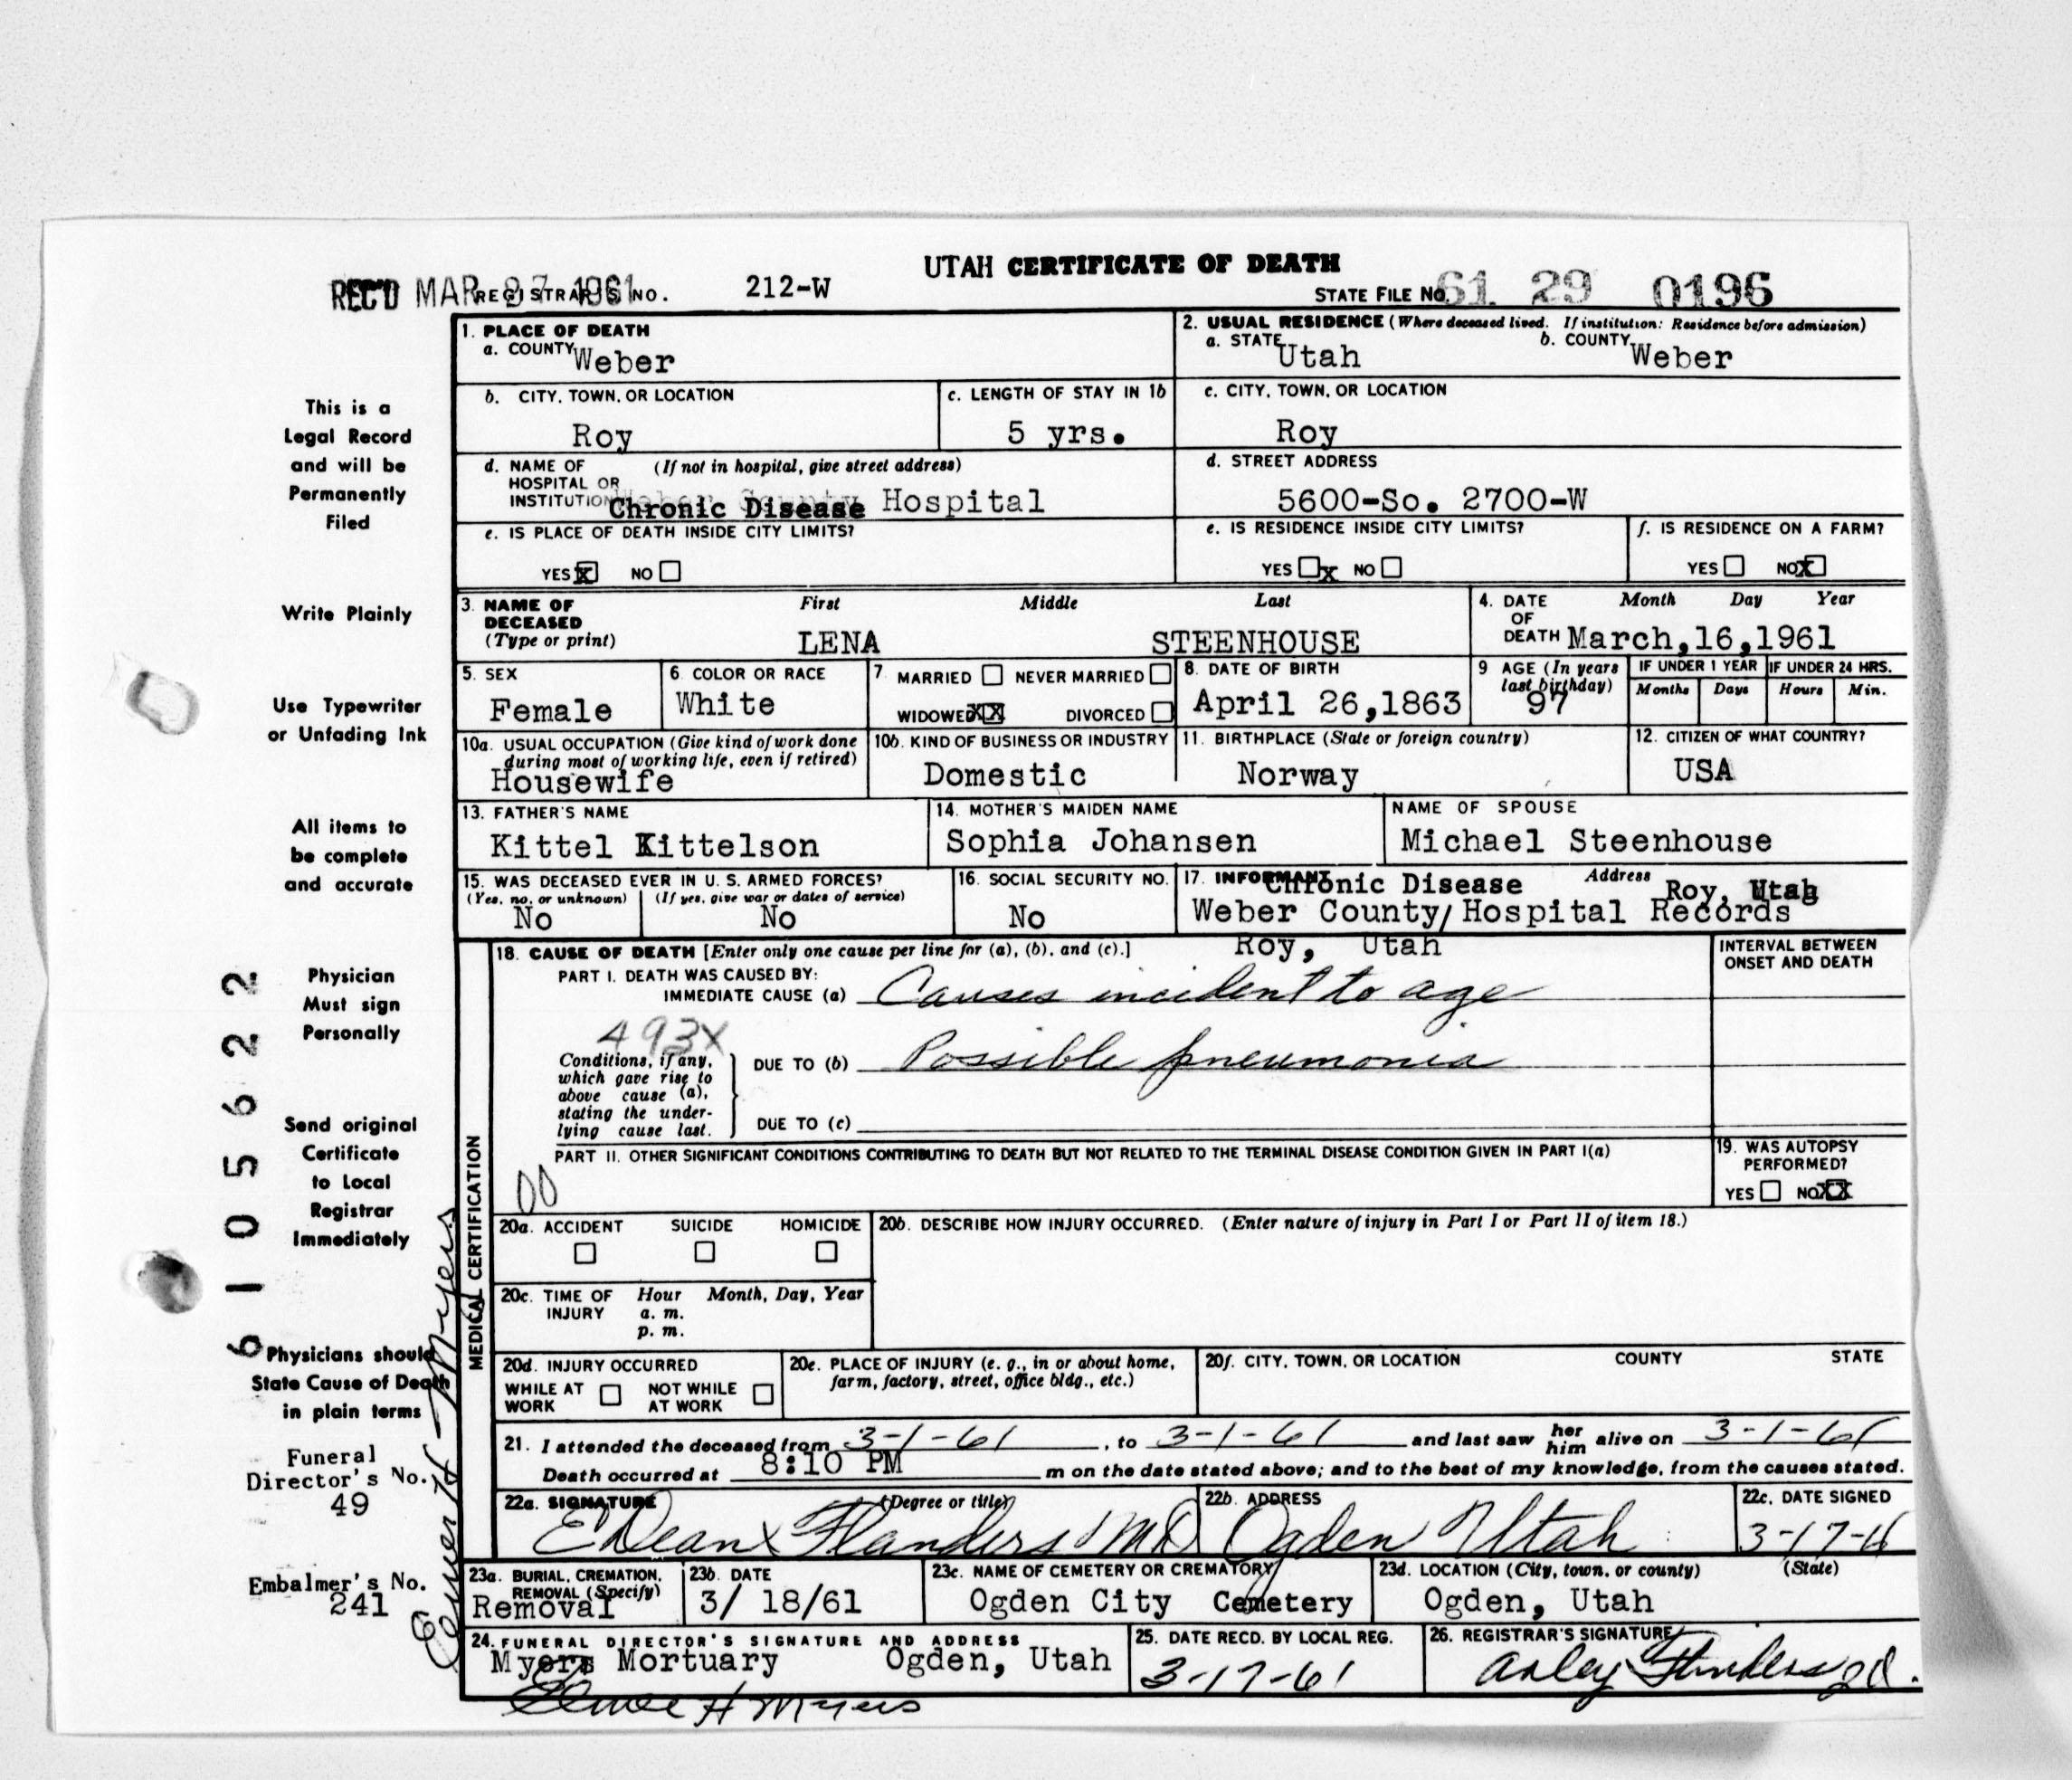 UTAH CERTIFICATE OF DEATH
REC'D MAR 27 1961 REGISTRAR'S NO. 212-W STATE FILE NO. 61 29 0196
1. PLACE OF DEATH
a. COUNTY Weber
2. USUAL RESIDENCE (Where deceased lived. If institution: Residence before admission)
a. STATE Utah b. COUNTY Weber
b. CITY, TOWN, OR LOCATION Roy
c. LENGTH OF STAY IN 1b 5 yrs.
c. CITY, TOWN, OR LOCATION Roy
d. NAME OF (If not in hospital, give street address)
HOSPITAL OR
INSTITUTION Weber County Chronic Disease Hospital
d. STREET ADDRESS
5600-So. 2700-W
e. IS PLACE OF DEATH INSIDE CITY LIMITS?
YES X NO
e. IS RESIDENCE INSIDE CITY LIMITS?
YES X NO
f. IS RESIDENCE ON A FARM?
YES NO X
3. NAME OF DECEASED (Type or print)
First Middle Last
LENA STEENHOUSE
4. DATE OF DEATH Month Day Year
March,16,1961
5. SEX
Female
6. COLOR OR RACE
White
7 MARRIED NEVER MARRIED
WIDOWED XX DIVORCED
8. DATE OF BIRTH
April 26,1863
9 AGE (In years last birthday)
97
IF UNDER 1 YEAR IF UNDER 24 HRS.
Months Days Hours Min.
10a. USUAL OCCUPATION (Give kind of work done during most of working life, even if retired)
Housewife
10b. KIND OF BUSINESS OR INDUSTRY
Domestic
11. BIRTHPLACE (State or foreign country)
Norway
12. CITIZEN OF WHAT COUNTRY?
USA
13. FATHER'S NAME
Kittel Kittelson
14. MOTHER'S MAIDEN NAME
Sophia Johansen
NAME OF SPOUSE
Michael Steenhouse
15. WAS DECEASED EVER IN U. S. ARMED FORCES?
(Yes, no, or unknown) (If yes, give war or dates of service)
No No
16. SOCIAL SECURITY NO.
No
17. INFORMANT Chronic Disease Address Roy, Utah
Weber County/Hospital Records
Roy, Utah
18. CAUSE OF DEATH [Enter only one cause per line for (a), (b), and (c).]
INTERVAL BETWEEN ONSET AND DEATH
PART I. DEATH WAS CAUSED BY:
IMMEDIATE CAUSE (a) Causes incident to age
493X
Conditions, if any, which gave rise to above cause (a), stating the underlying cause last.
DUE TO (b) Possible pneumonia
DUE TO (c)
PART II. OTHER SIGNIFICANT CONDITIONS CONTRIBUTING TO DEATH BUT NOT RELATED TO THE TERMINAL DISEASE CONDITION GIVEN IN PART I(a)
00
19. WAS AUTOPSY PERFORMED?
YES NO XX
20a. ACCIDENT SUICIDE HOMICIDE
20b. DESCRIBE HOW INJURY OCCURRED. (Enter nature of injury in Part I or Part II of item 18.)
20c. TIME OF INJURY Hour Month, Day, Year
a. m.
p. m.
20d. INJURY OCCURRED
WHILE AT WORK NOT WHILE AT WORK
20e. PLACE OF INJURY (e. g., in or about home, farm, factory, street, office bldg., etc.)
20f. CITY, TOWN, OR LOCATION COUNTY STATE
21. I attended the deceased from 3-1-61, to 3-1-61 and last saw her him alive on 3-1-61
Death occurred at 8:10 PM m on the date stated above; and to the best of my knowledge, from the causes stated.
22a. SIGNATURE (Degree or title)
E Dean Flanders MD
22b. ADDRESS
Ogden Utah
22c. DATE SIGNED
3-17-61
23a. BURIAL, CREMATION, REMOVAL (Specify)
Removal
23b. DATE
3/ 18/61
23c. NAME OF CEMETERY OR CREMATORY
Ogden City Cemetery
23d. LOCATION (City, town, or county) (State)
Ogden, Utah
24. FUNERAL DIRECTOR'S SIGNATURE AND ADDRESS
Myers Mortuary Ogden, Utah
Elmer H Myers
25. DATE RECD. BY LOCAL REG.
3-17-61
26. REGISTRAR'S SIGNATURE
MEDICAL CERTIFICATION
This is a
Legal Record
and will be
Permanently
Filed
Write Plainly
Use Typewriter
or Unfading Ink
All items to
be complete
and accurate
Physician
Must sign
Personally
Send original
Certificate
to Local
Registrar
Immediately
Physicians should
State Cause of Death
in plain terms
Funeral
Director's No.
49
Embalmer's No.
241
Elmer H Myers
6105622